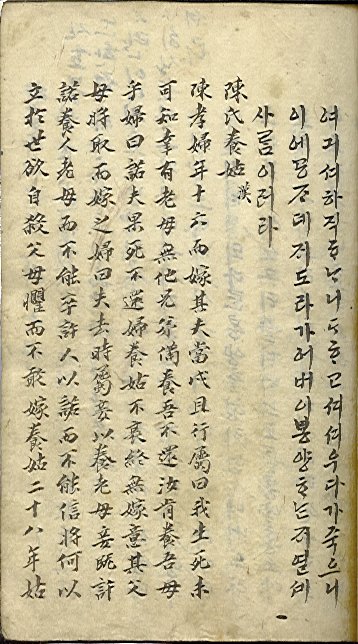 여긔셔하직ᄒᆞᄂᆞ니ᄒᆞ고셔셔우다가죽으니
이에 도라가어버이봉양ᄒᆞᄂᆞᆫ저열세
사ᄅᆞᆷ이러라
陳氏養姑 漢
陳孝婦年十六而嫁其夫當戍且行屬曰我生死未
可知幸有老母無他兄弟備養吾不還汝肯養吾母
乎婦曰諾夫果死不還婦養姑不衰終無嫁意其父
母將取而嫁之婦曰夫去時屬妾以養老母妾旣許
諾養人老母而不能卒許人以諾而不能信將何以
立於世欲自殺父母懼而不敢嫁養姑二十八年姑